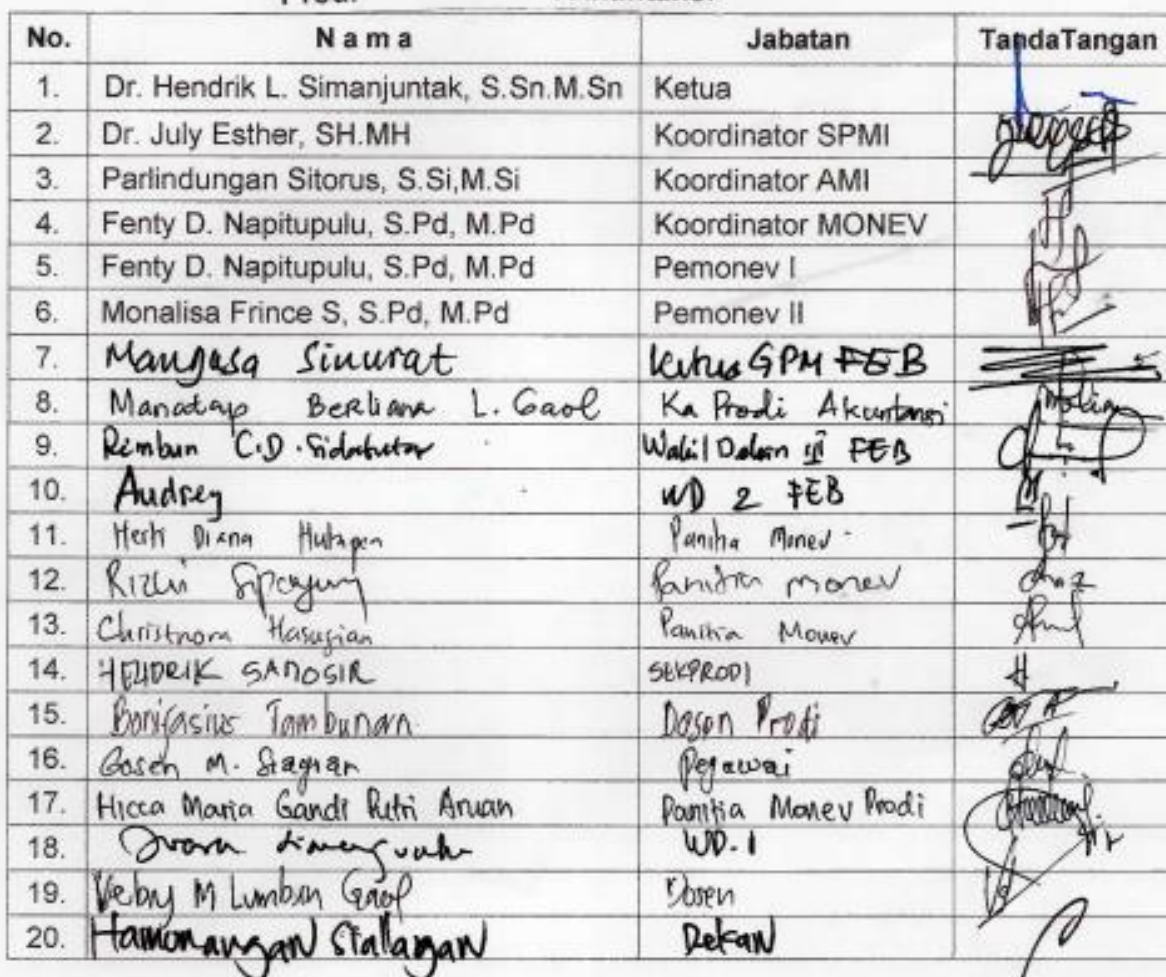 No. Nama Jabatan TandaTangan
1. Dr. Hendrik L. Simanjuntak, S.Sn.M.Sn Ketua
2. Dr. July Esther, SH.MH Koordinator SPMI
3. Parlindungan Sitorus, S.Si,M.Si Koordinator AMI
4. Fenty D. Napitupulu, S.Pd, M.Pd Koordinator MONEV
5. Fenty D. Napitupulu, S.Pd, M.Pd Pemonev I
6. Monalisa Frince S, S.Pd, M.Pd Pemonev II
7. Mangasa Sinurat Ketua GPM FEB
8. Manatap Berliana L. Gaol Ka Prodi Akuntansi
9. Rimbun C.D. Sidabutar Wakil Dekan III FEB
10. Audrey WD 2 FEB
11. Herti Diana Hutapea Panitia Monev
12. Rizki Sipayung Panitia monev
13. Christnora Hasugian Panitia Monev
14. HENDRIK SAMOSIR SEKPRODI
15. Bonifasius Tambunan Dosen Prodi
16. Gosen M. Siagian Pegawai
17. Hicca Maria Gandi Putri Aruan Panitia Monev Prodi
18. WD. 1
19. Veby M Lumban Gaol Dosen
20. Hamonangan Siallagan Dekan